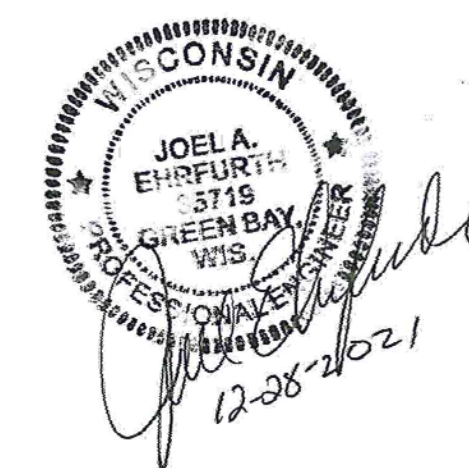 WISCONSIN
JOEL A.
EHRFURTH
35719
GREEN BAY,
WIS.
PROFESSIONAL ENGINEER
Joel Ehrfurth
12-28-2021